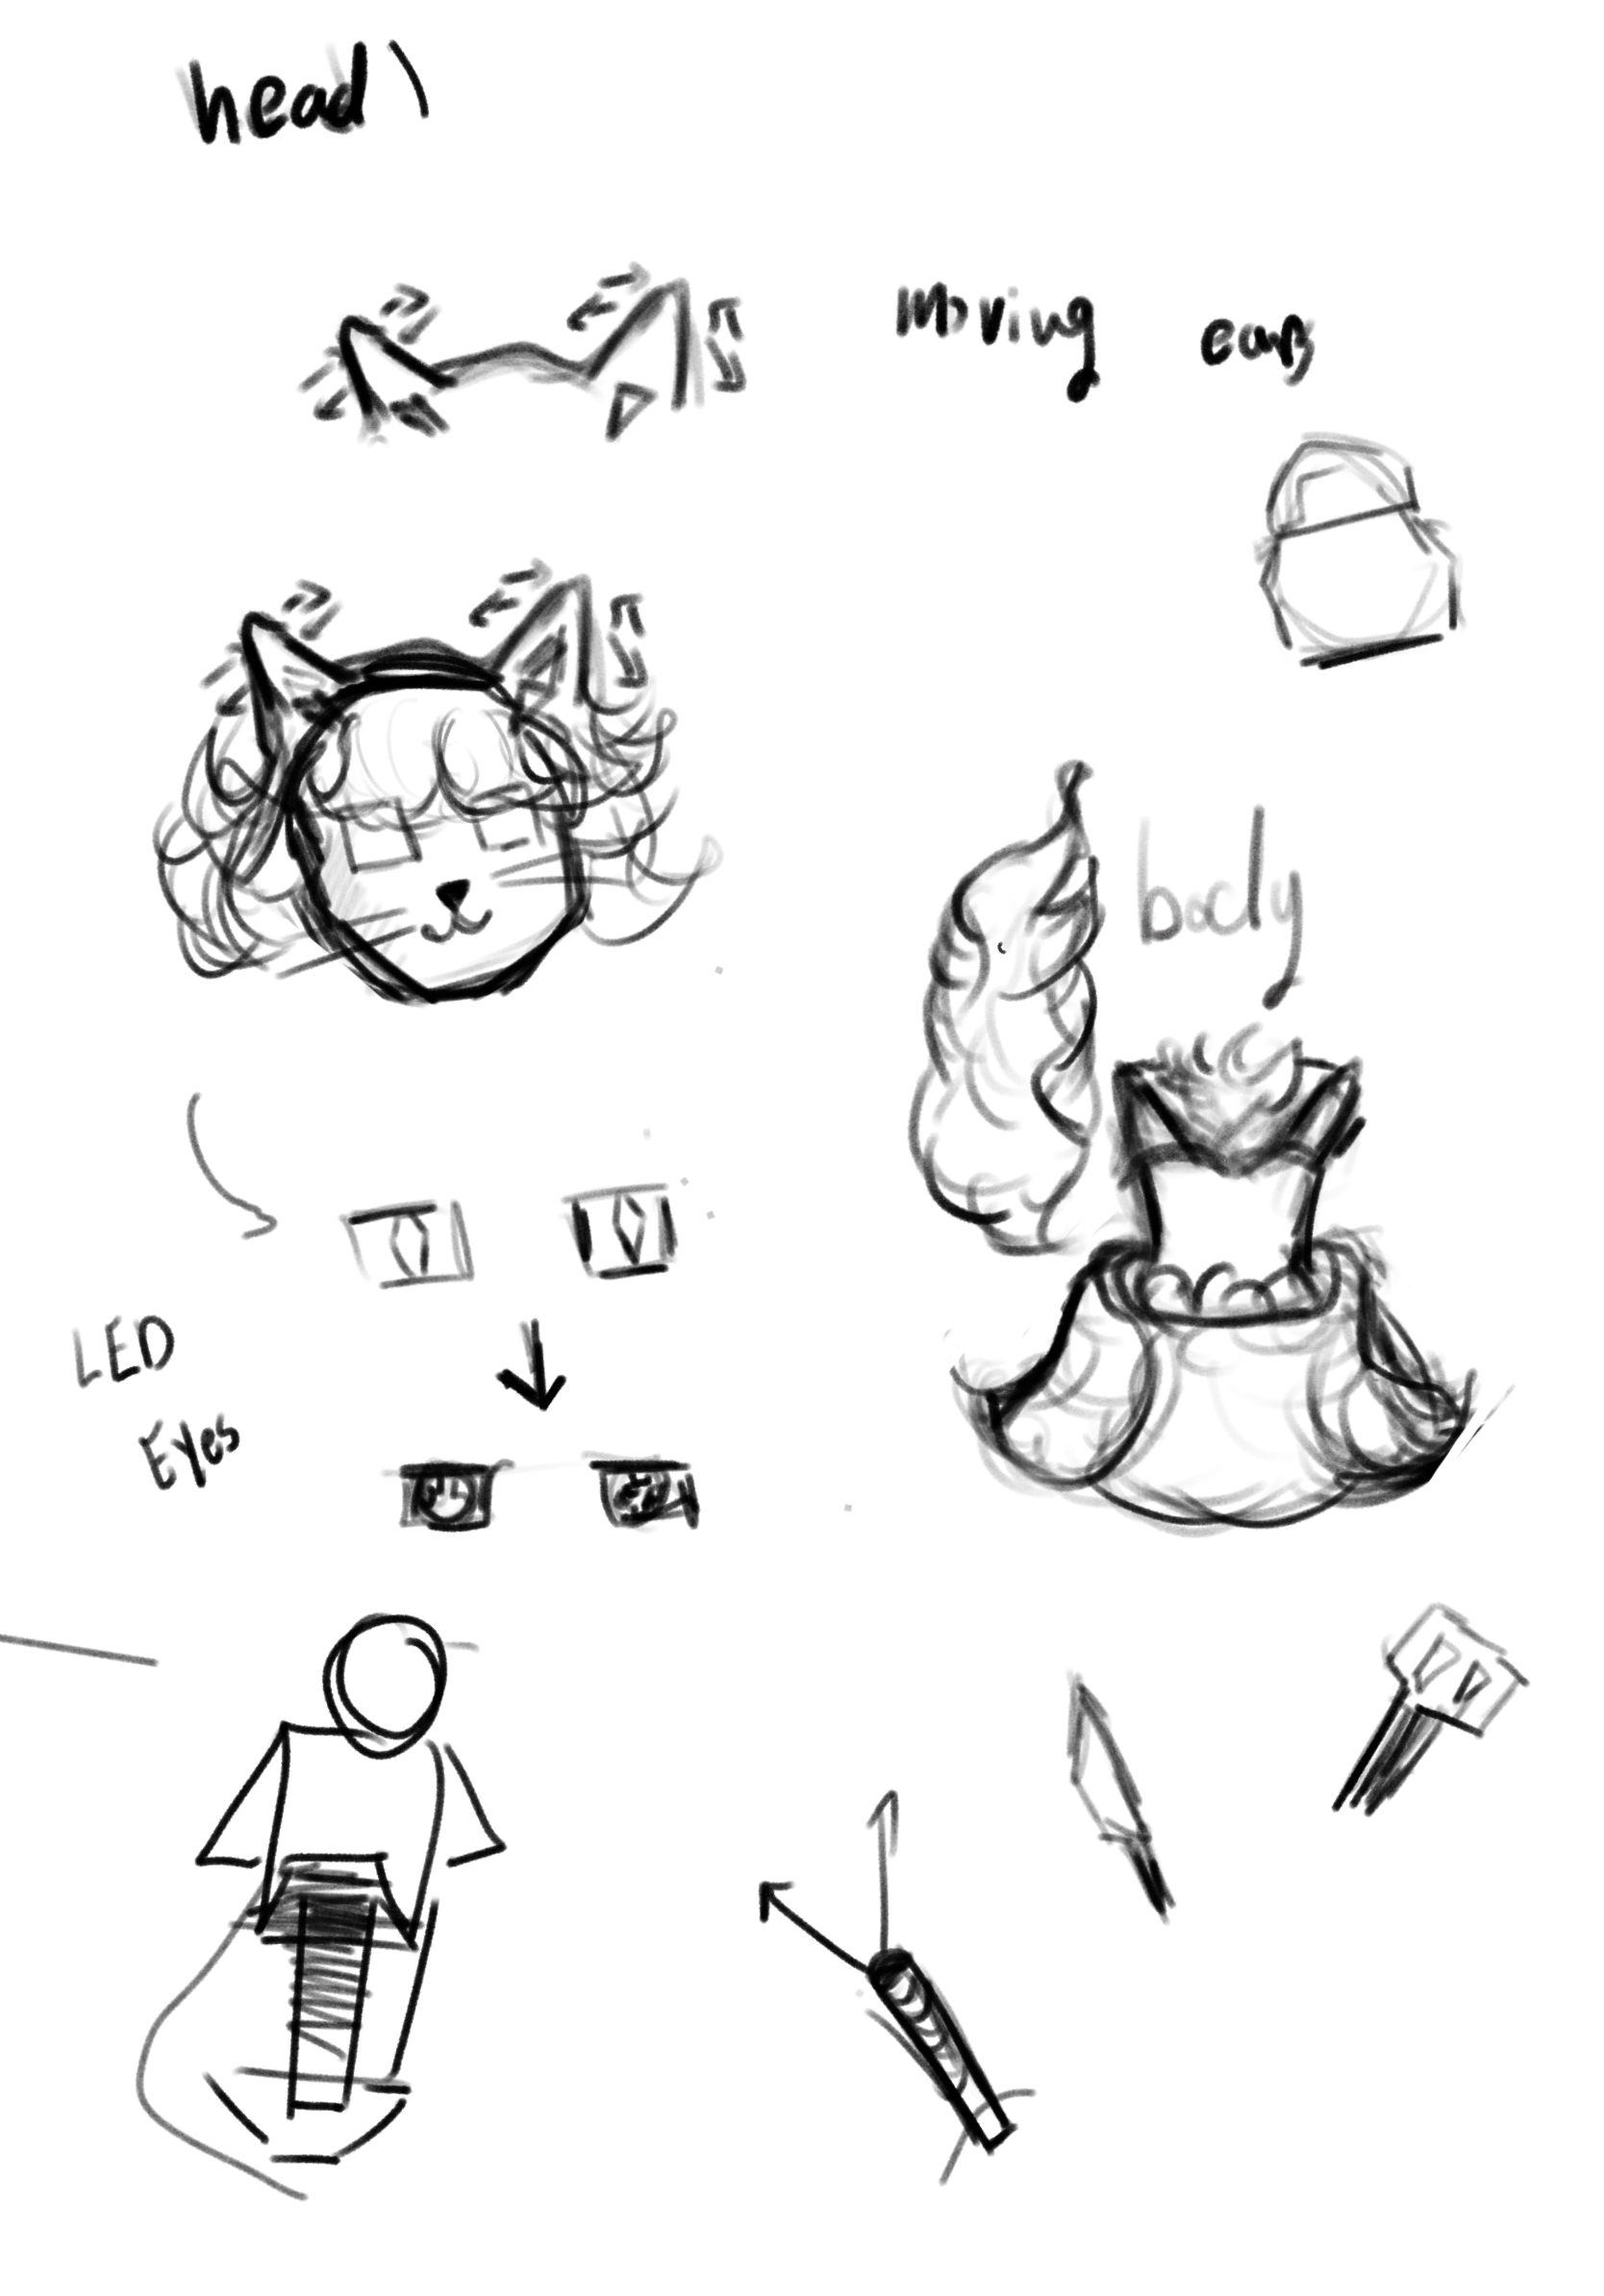 head
moving ears
body
LED
Eyes